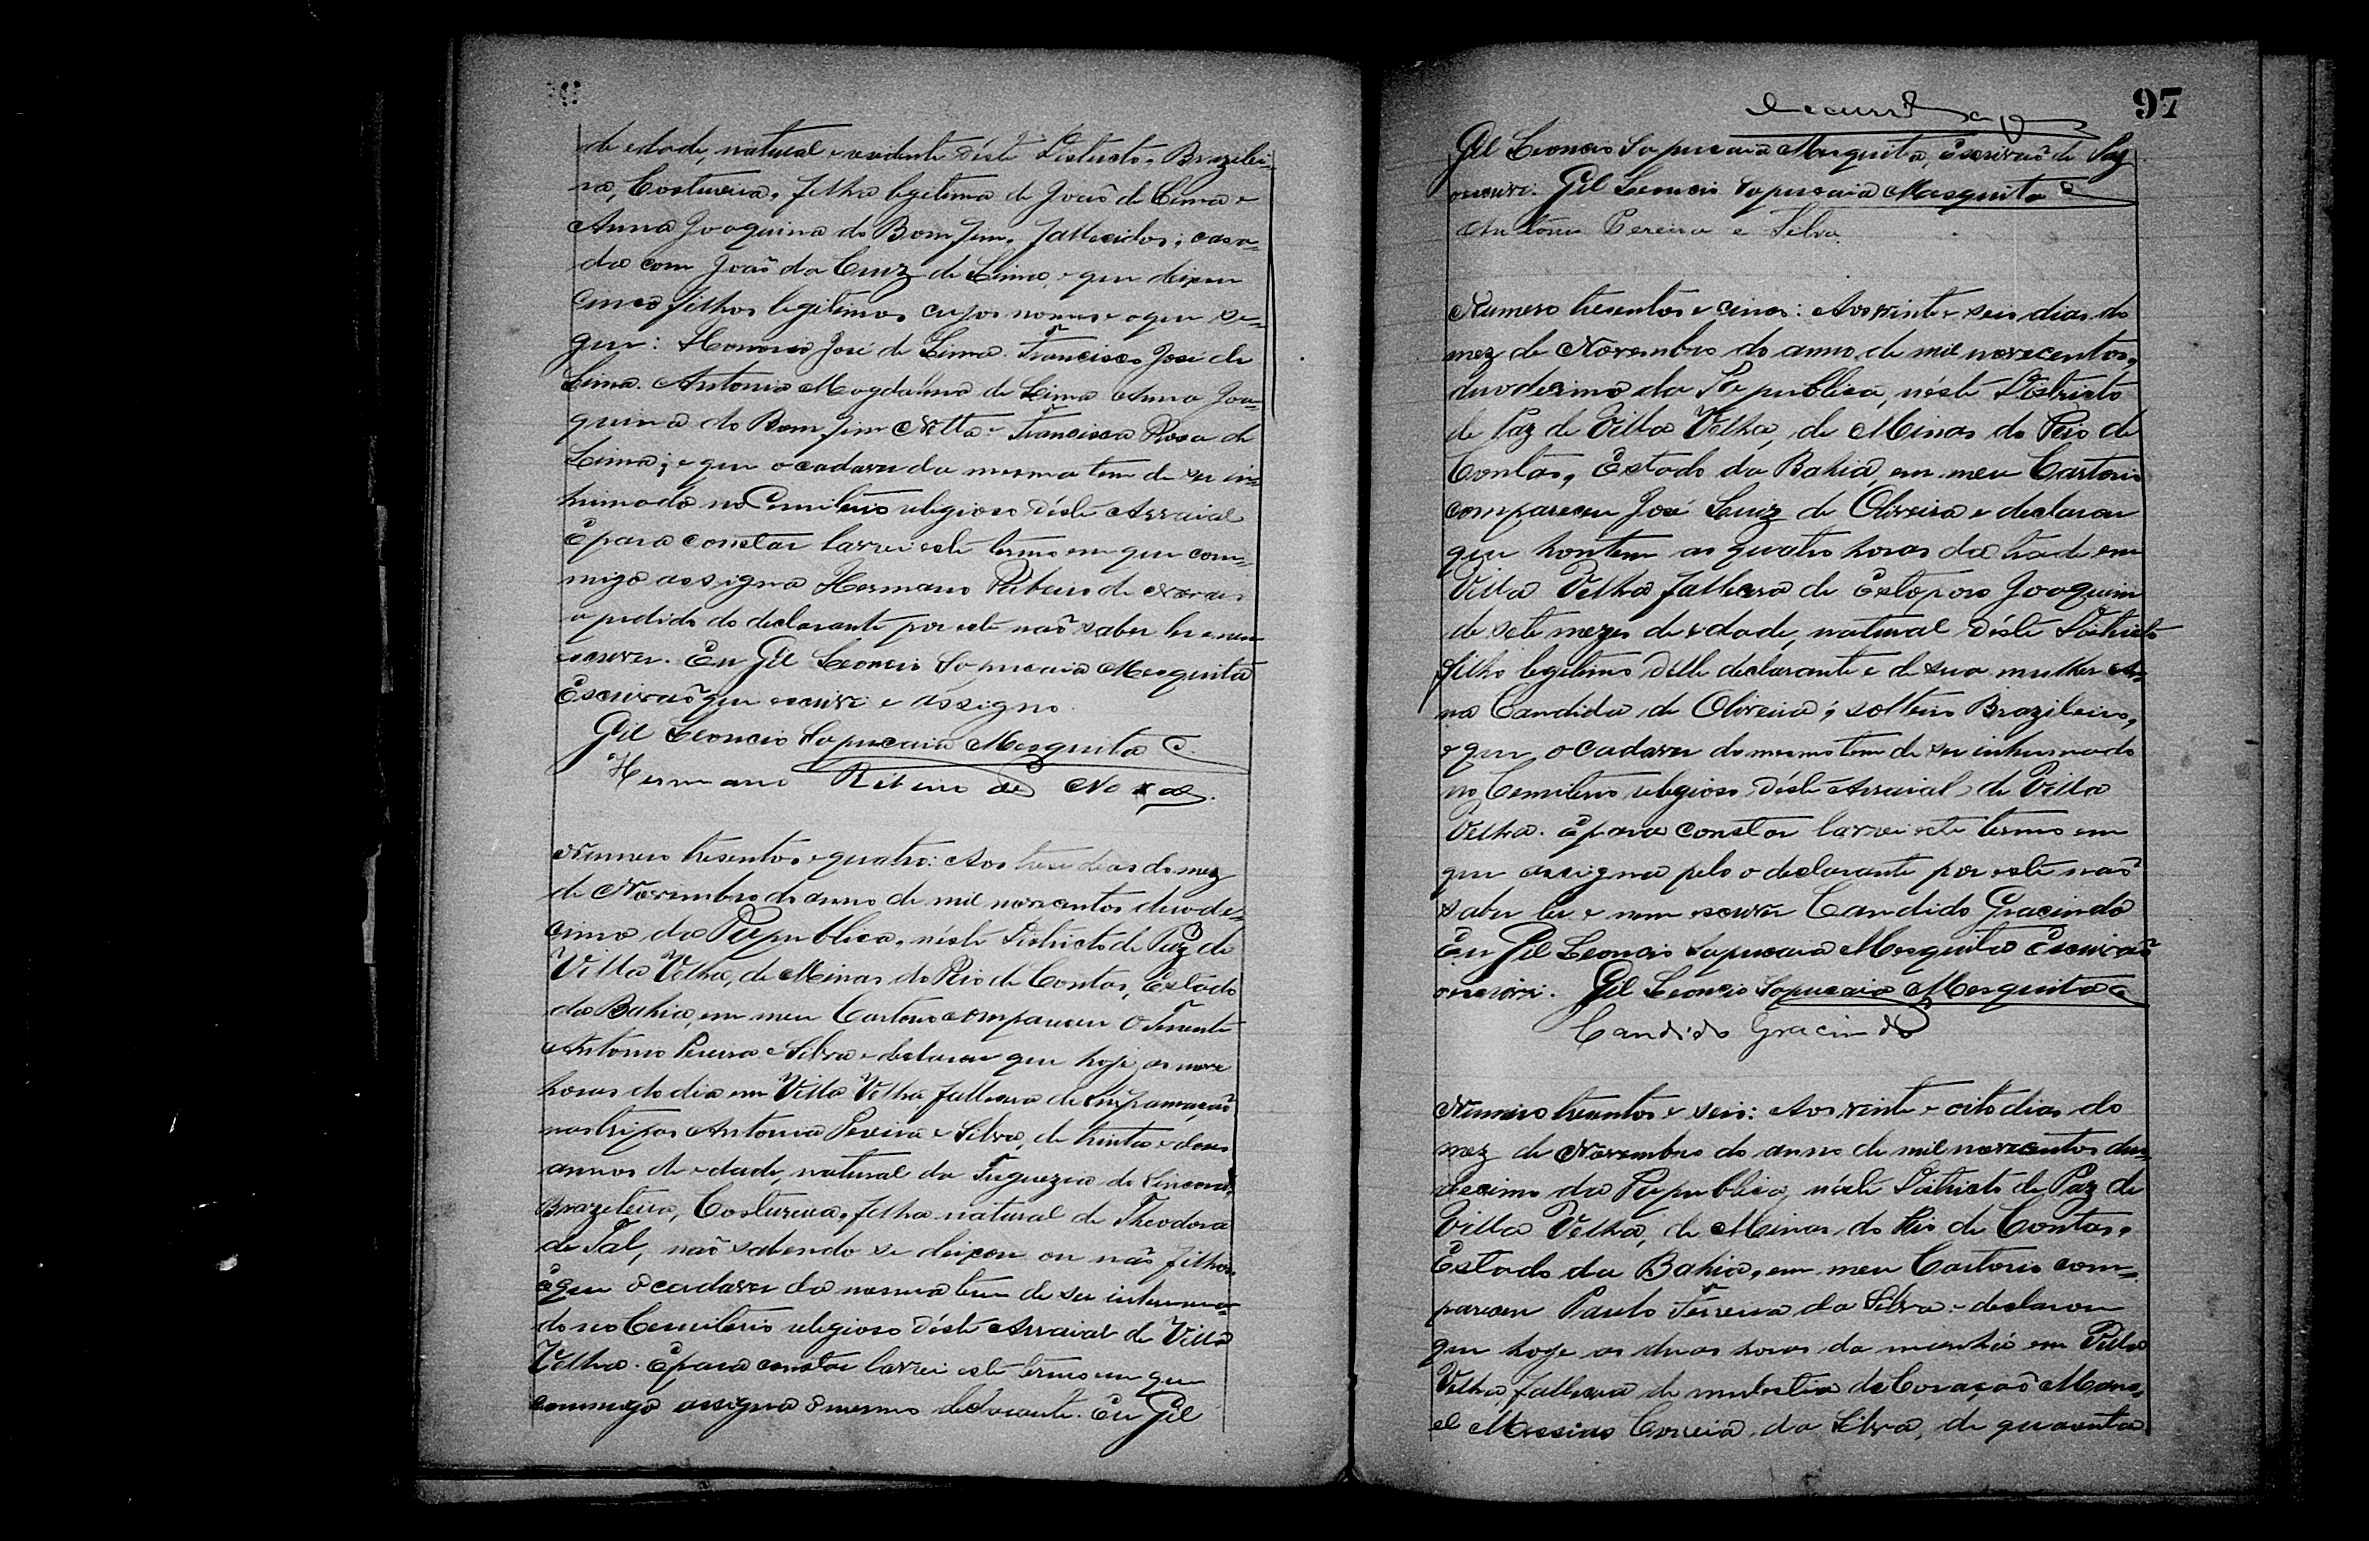 de edade, natural e residente déste Districto, Brazilei-
ra, Costureira, filha legitima de João de Lima e
Anna Joaquina do Bom fim, fallecidos; casa-
da com João da Cruz de Lima, e que deixou
cinco filhos legitimos cujos nomes e o que se-
gue: Honorio José de Lima. Francisco José de
Lima. Antonia Magdalena de Lima Anna Joa-
quina do Bom fim Netta e Francisca Rosa de
Lima; e que o cadaver da mesma tem de ser in-
humado no Cemiterio religioso déste Arraial
E para constar lavrei este termo em que com-
migo assigna Hermano Ribeiro de Novais
a pedido do declarante por este não saber ler e nem
escrever. Eu Gil Leoncio Sapucaia Mesquita
Escrivão que escrivi e assigno.
Gil Leoncio Sapucaia Mesquita
Hermano Ribeiro de Novaes.
Numero tresentos e quatro: Aos trese dias do mez
de Novembro do anno de mil novecentos duode-
cimo da Republica, néste Districto de Paz de
Villa Velha, de Minas do Rio de Contas, Estado
da Bahia, em meu Cartorio compareceu o Tenente
Antonio Pereira e Silva e declarou que hoje as nove
horas do dia em Villa Velha fallecera de inflamação
nas tripas Antonia Pereira e Silva, de trinta e dous
annos de edade, natural da Freguezia do Sincorá,
Brazileira, Costureira, filha natural de Theodora
de Tal, não sabendo se deixou ou não filhos.
E que o cadaver da mesma tem de ser inhuma-
do no Cemiterio religioso déste Arraial de Villa
Velha. E para constar lavrei este termo em que
commigo assigna o mesmo declarante. Eu Gil
97
Gil Leoncio Sapucaia Mesquita, Escrivão de Paz
escrivi. Gil Leoncio Sapucaia Mesquita
Antonio Pereira e Silva.
Numero tresentos e cinco: Aos vinte e seis dias do
mez de Novembro do anno de mil novecentos,
duodecimo da Republica, néste Districto
de Paz de Villa Velha, de Minas do Rio de
Contas, Estado da Bahia, em meu Cartorio
compareceu José Luiz de Oliveira e declarou
que hontem as quatro horas da trade em
Villa Velha fallecera de Estoporo Joaquim
de sete mezes de edade, natural déste Districto
filho legitimo delle declarante e de sua mulher An-
na Candida de Oliveira; solteiro Brazileiro,
e que o cadaver do mesmo tem de ser inhumado
no Cemiterio religioso déste Arraial de Villa
Velha. E para constar lavrei este termo em
que assigna pelo o declarante por este não
saber ler e nem escrever Candido Gracindo
Eu Gil Leoncio Sapucaia Mesquita Escrivão
escrivi. Gil Leoncio Sapucaia Mesquita
Candido Gracindo
Numero tresentos e seis: Aos vinte e oito dias do
mez de Novembro do anno de mil novecentos duo-
decimo da Republica, néste Districto de Paz de
Villa Velha, de Minas do Rio de Contas,
Estado da Bahia, em meu Cartorio com-
pareceu Paulo Ferreira da Silva e declarou
que hoje as duas horas da manhã em Villa
Velha, fallecera de mulestia do Coração Mano-
el Messias Correia da Silva, de quarenta